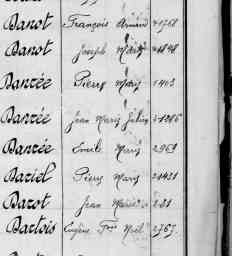 Banot François Armand 2 1768
Banot Joseph Marie 2 1848
Banzée Pierre Marie 1403
Banzée Jean Marie Julien 2 1286
Banzée Emile Marie 2969
Bariel Pierre Marie 2 1431
Barot Jean Marie 2 21
Barlois Eugène Fois Noël 2767